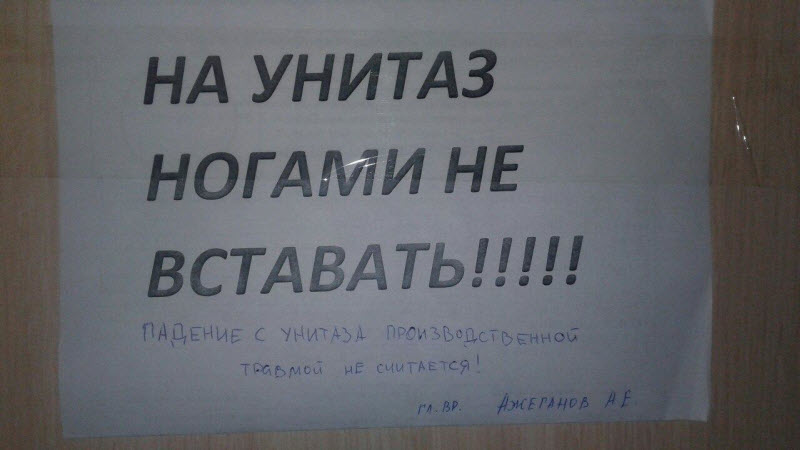 НА УНИТАЗ
НОГАМИ НЕ
ВСТАВАТЬ!!!!!
ПАДЕНИЕ С УНИТАЗА ПРОИЗВОДСТВЕННОЙ
ТРАВМОЙ НЕ СЧИТАЕТСЯ!
ГЛ. ВР. АЖЕГАНОВ А.Е.